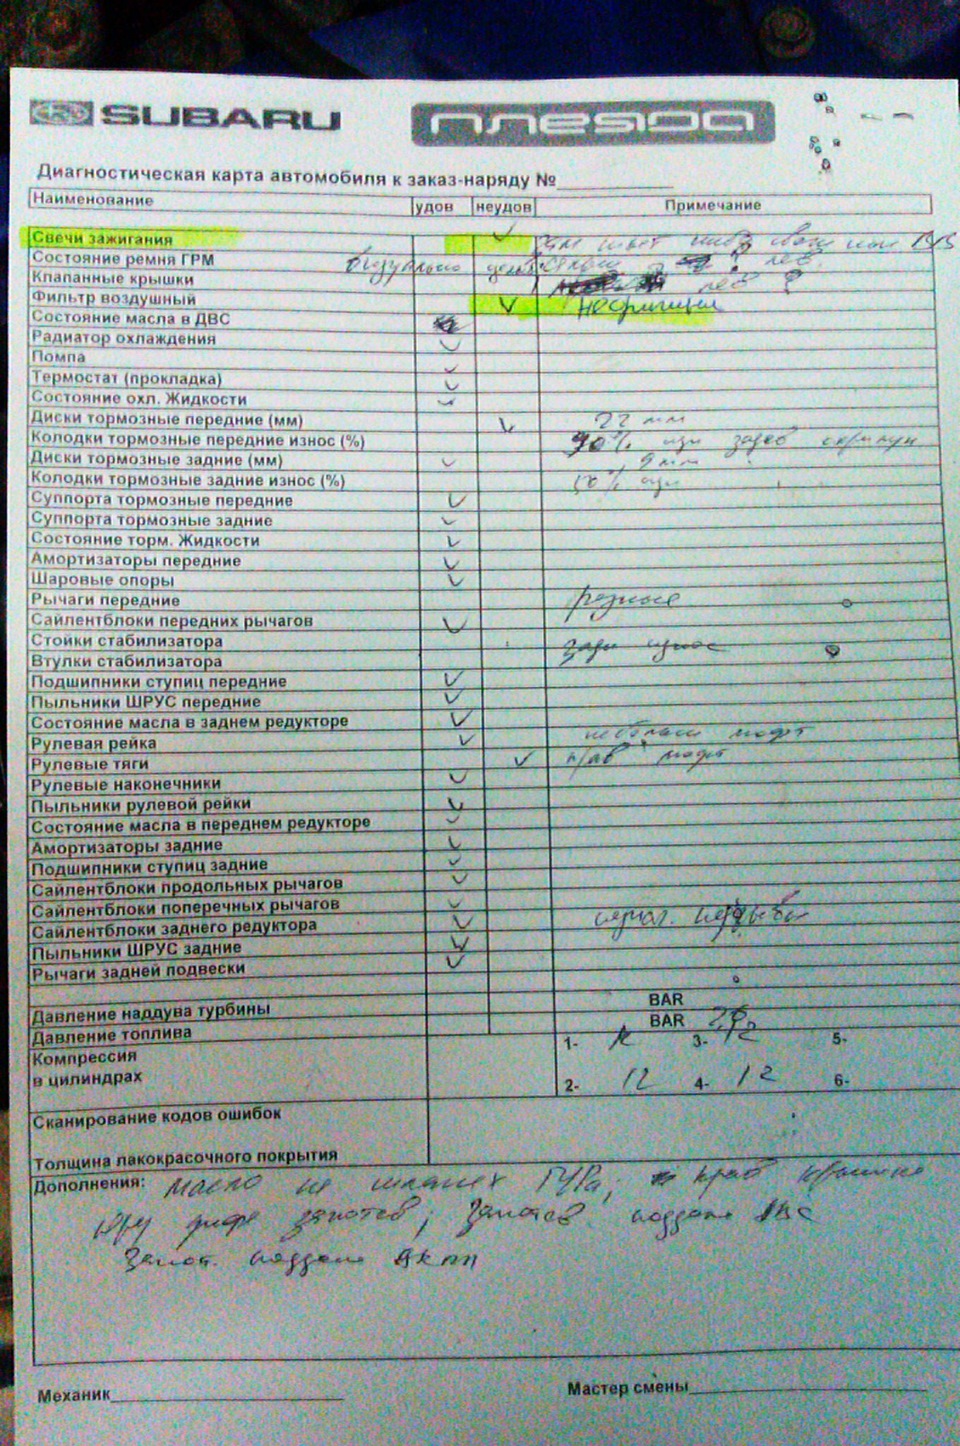 SUBARU ПЛЕЯДА
Диагностическая карта автомобиля к заказ-наряду №
Наименование удов неудов Примечание
Свечи зажигания
Состояние ремня ГРМ визуально
Клапанные крышки лев ?
Фильтр воздушный
Состояние масла в ДВС
Радиатор охлаждения
Помпа
Термостат (прокладка)
Состояние охл. Жидкости
Диски тормозные передние (мм) 22 мм
Колодки тормозные передние износ (%) 90%
Диски тормозные задние (мм) 9 мм
Колодки тормозные задние износ (%) 50%
Суппорта тормозные передние
Суппорта тормозные задние
Состояние торм. Жидкости
Амортизаторы передние
Шаровые опоры
Рычаги передние разные
Сайлентблоки передних рычагов
Стойки стабилизатора
Втулки стабилизатора
Подшипники ступиц передние
Пыльники ШРУС передние
Состояние масла в заднем редукторе
Рулевая рейка люфт
Рулевые тяги прав люфт
Рулевые наконечники
Пыльники рулевой рейки
Состояние масла в переднем редукторе
Амортизаторы задние
Подшипники ступиц задние
Сайлентблоки продольных рычагов
Сайлентблоки поперечных рычагов
Сайлентблоки заднего редуктора
Пыльники ШРУС задние
Рычаги задней подвески
Давление наддува турбины BAR
Давление топлива BAR
Компрессия 1- 12 3- 12 5-
в цилиндрах 2- 12 4- 12 6-
Сканирование кодов ошибок
Толщина лакокрасочного покрытия
Дополнения: масло на шлангах ГУРа; прав крышка
запотев; запотев. поддон ДВС
запот. поддон АКПП
Механик Мастер смены